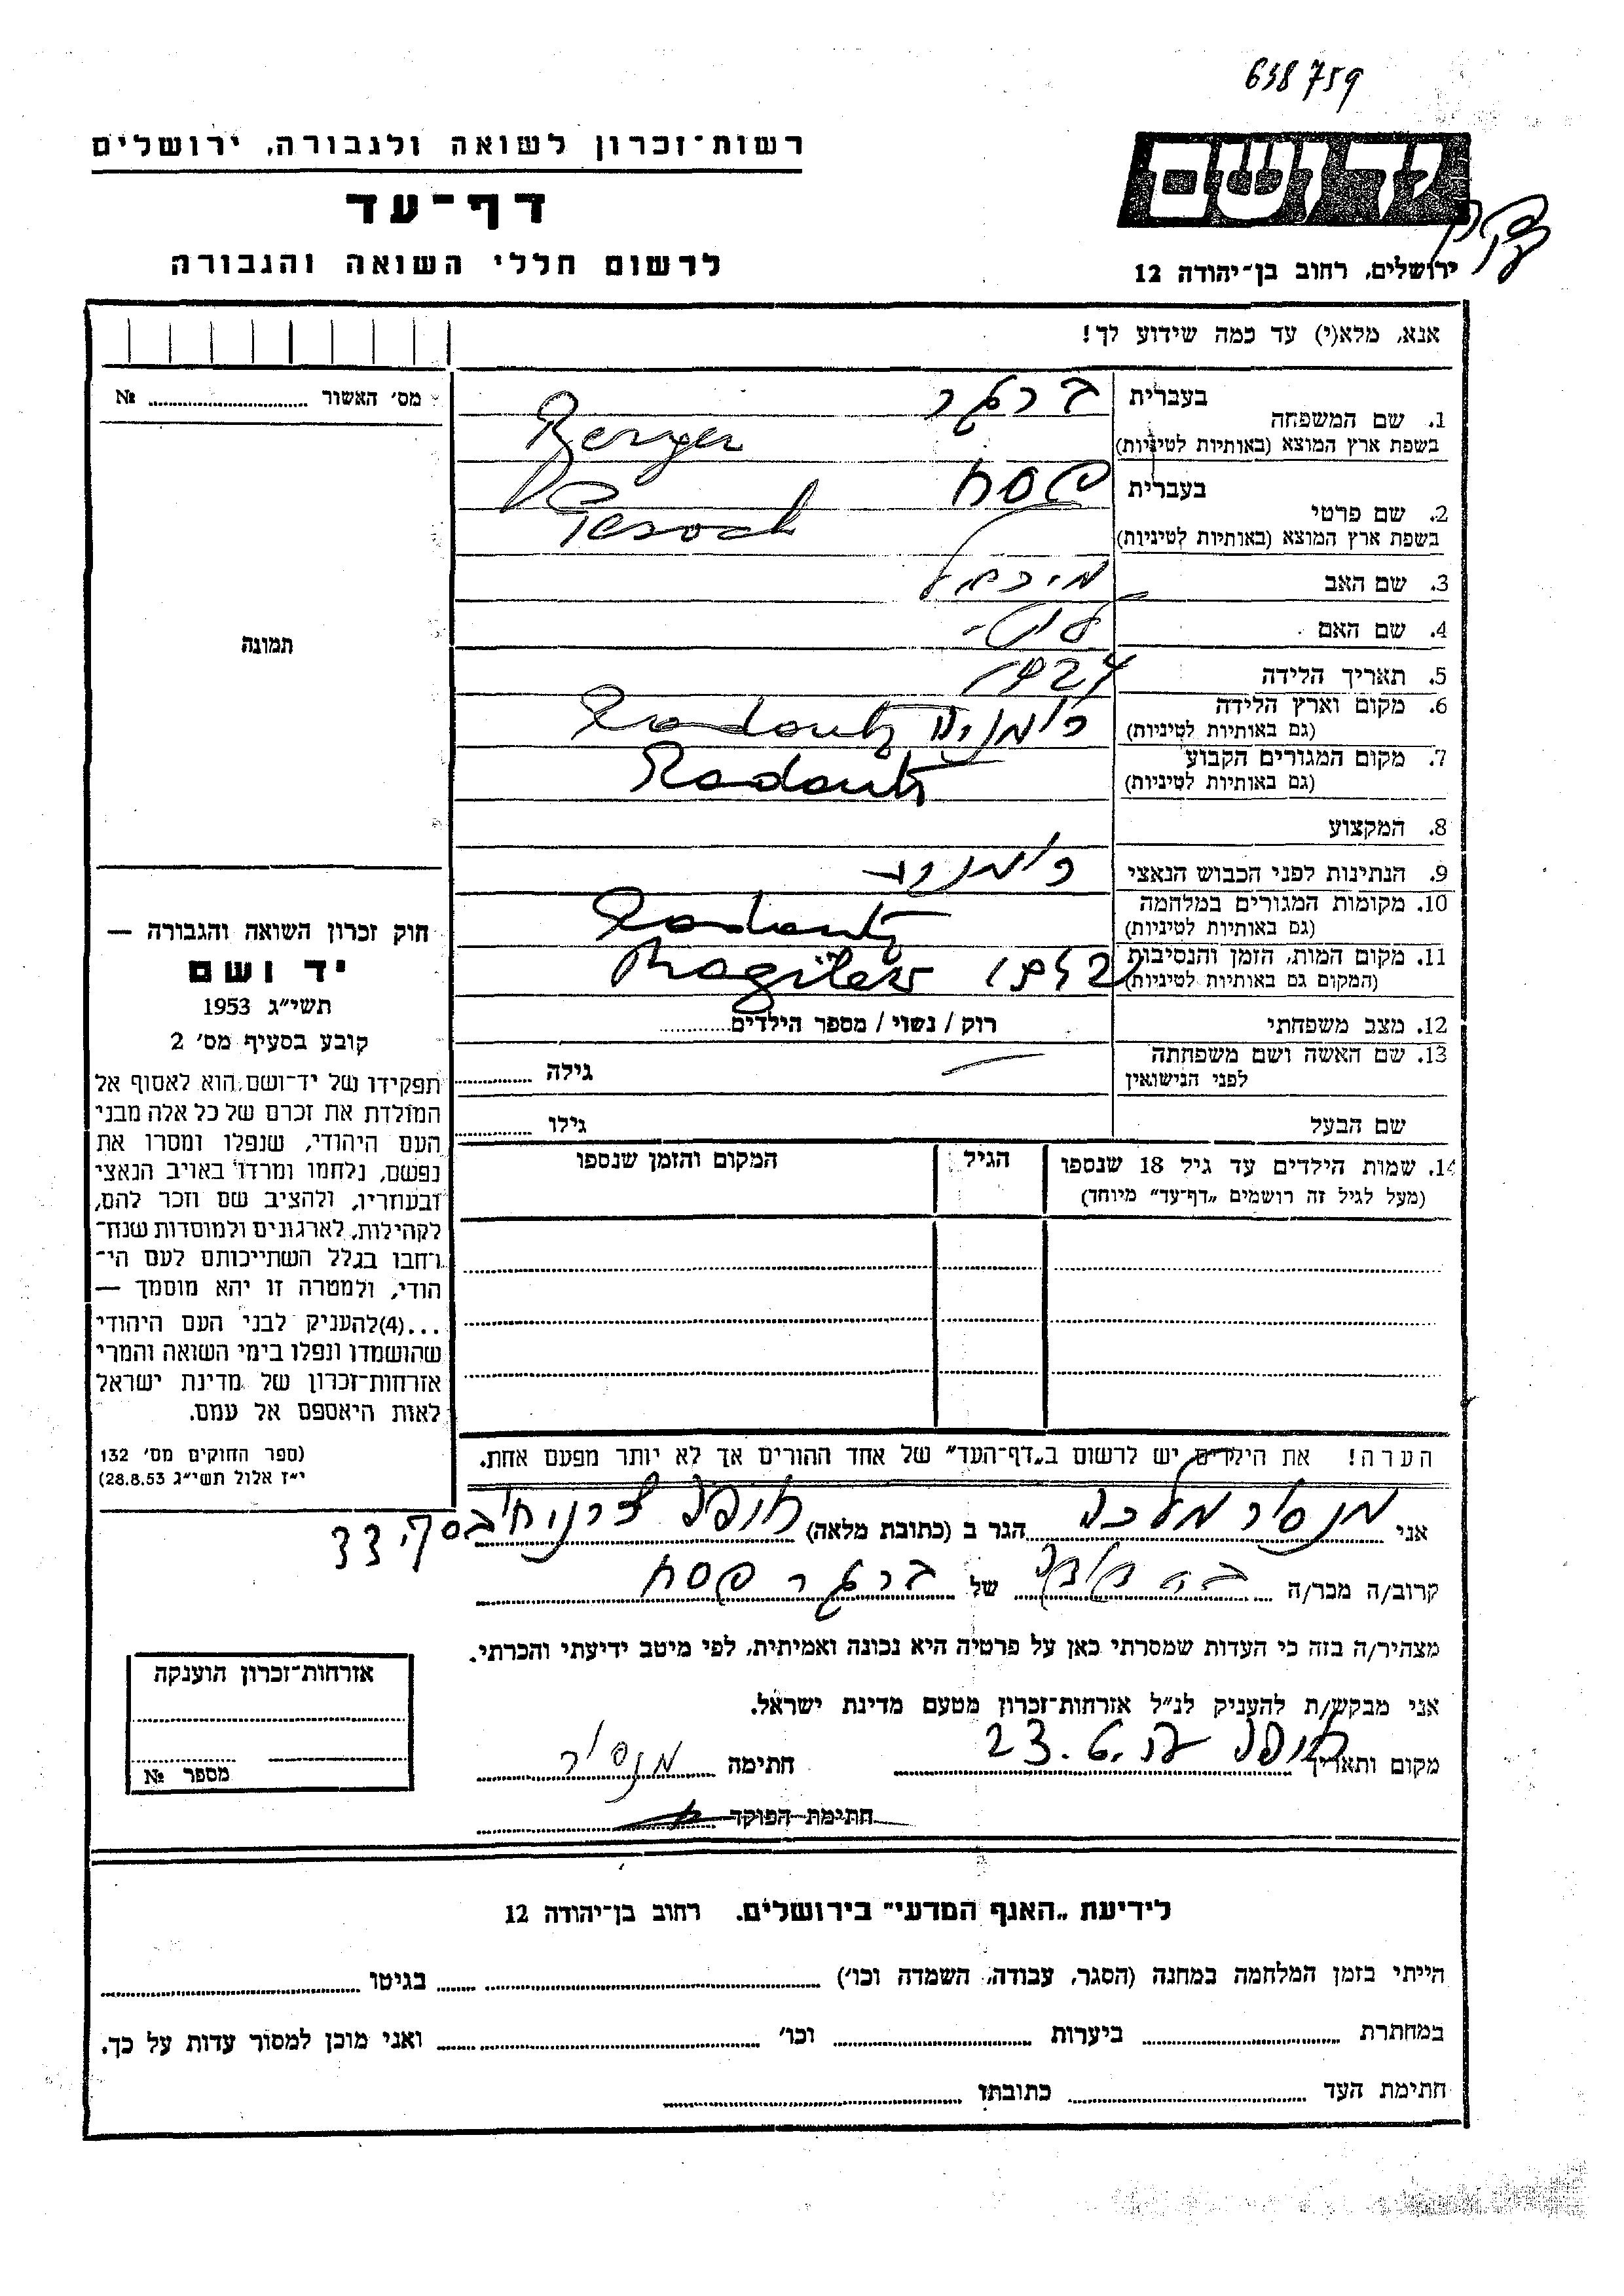 638759
רשות־זכרון לשואה ולגבורה, ירושלים
דף־עד
לרשום חללי השואה והגבורה
יד ושם
ירושלים, רחוב בן־יהודה 12
אנא, מלא(י) עד כמה שידוע לך!
מס׳ האשור № 
1. שם המשפחה
בעברית ברגר
בשפת ארץ המוצא (באותיות לטיניות) Berger
2. שם פרטי
בעברית פסח
בשפת ארץ המוצא (באותיות לטיניות) Pesach
3. שם האב מיכאל
4. שם האם
5. תאריך הלידה 1927
6. מקום וארץ הלידה (גם באותיות לטיניות) רומניה Radautz
7. מקום המגורים הקבוע (גם באותיות לטיניות) Radautz
8. המקצוע
9. הנתינות לפני הכבוש הנאצי רומנית
10. מקומות המגורים במלחמה (גם באותיות לטיניות) Radautz
11. מקום המות, הזמן והנסיבות (המקום גם באותיות לטיניות) Mogilew
12. מצב משפחתי רוק / נשוי / מספר הילדים
13. שם האשה ושם משפחתה לפני הנישואין גילה
שם הבעל גילו
14. שמות הילדים עד גיל 18 שנספו הגיל המקום והזמן שנספו
(מעל לגיל זה רושמים „דף־עד״ מיוחד)
הערה! את הילדים יש לרשום ב„דף־העד״ של אחד ההורים אך לא יותר מפעם אחת.
תמונה
חוק זכרון השואה והגבורה —
יד ושם
תשי״ג 1953
קובע בסעיף מס׳ 2
תפקידו של יד־ושם הוא לאסוף אל
המולדת את זכרם של כל אלה מבני
העם היהודי, שנפלו ומסרו את
נפשם, נלחמו ומרדו באויב הנאצי
ובעוזריו, ולהציב שם וזכר להם,
לקהילות, לארגונים ולמוסדות שנח־
רבו בגלל השתייכותם לעם הי־
הודי, ולמטרה זו יהא מוסמך —
...(4) להעניק לבני העם היהודי
שהושמדו ונפלו בימי השואה והמרי
אזרחות־זכרון של מדינת ישראל
לאות היאספם אל עמם.
(ספר החוקים מס׳ 132
י״ז אלול תשי״ג 28.8.53)
אני מנסיר מלכה הגר ב (כתובת מלאה) חולון 33
קרוב/ה מכר/ה של ברגר פסח
מצהיר/ה בזה כי העדות שמסרתי כאן על פרטיה היא נכונה ואמיתית, לפי מיטב ידיעתי והכרתי.
אני מבקש/ת להעניק לנ״ל אזרחות־זכרון מטעם מדינת ישראל.
מקום ותאריך חולון 23.6. חתימה מנסיר
חתימת הפוקד
אזרחות־זכרון הוענקה
מספר №
לידיעת „האגף המדעי״ בירושלים. רחוב בן־יהודה 12
הייתי בזמן המלחמה במחנה (הסגר, עבודה, השמדה וכו׳) בגיטו
במחתרת ביערות וכו׳ ואני מוכן למסור עדות על כך.
חתימת העד כתובתו